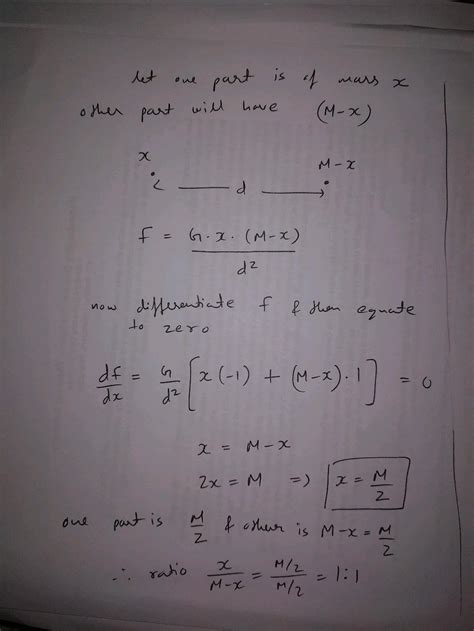 let one part is of mass x
other part will have (M-x)
x M-x
d
f = G.x.(M-x) / d²
now differentiate f & then equate
to zero
df/dx = G/d² [x(-1) + (M-x).1] = 0
x = M-x
2x = M => x = M/2
one part is M/2 & other is M-x = M/2
∴ ratio x/M-x = M/2 / M/2 = 1:1